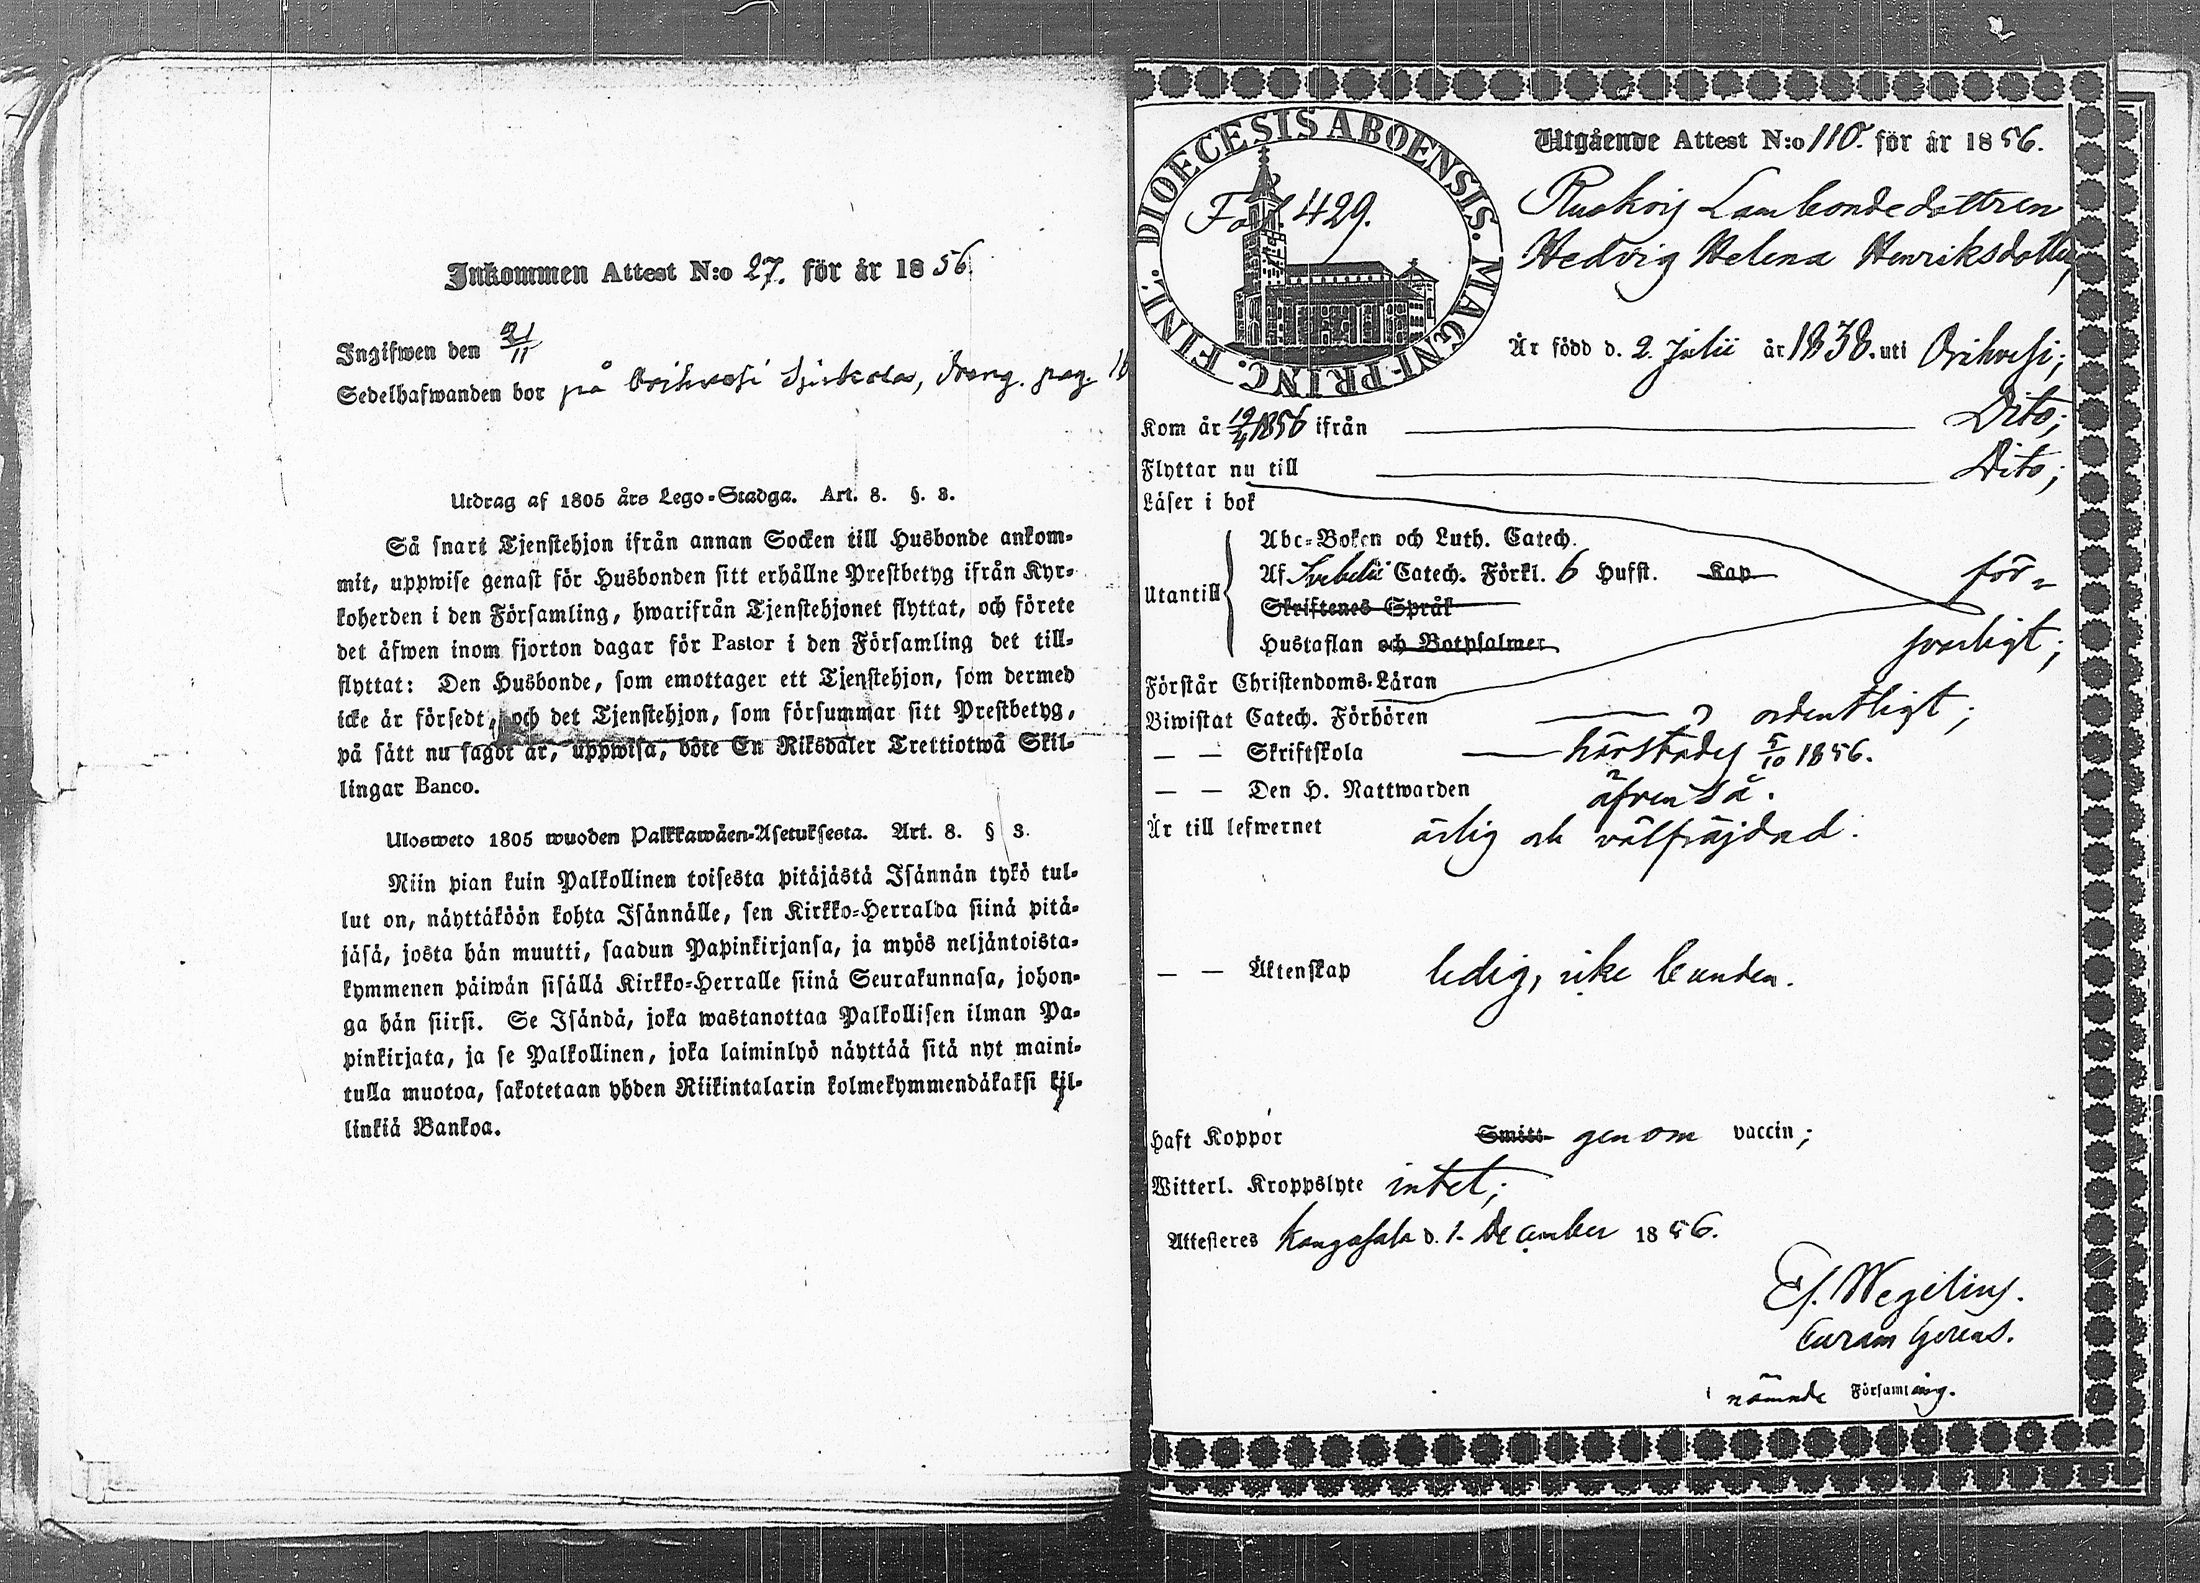 Inkommen Attest N:o 27. för år 1856.
Ingifwen den 21/11
Sedelhafwanden bor på Orihvesi
Utdrag af 1805 års Lego-Stadga. Art. 8. §. 3.
Så snart Tjenstehjon ifrån annan Socken till Husbonde ankom-
mit, uppwise genast för Husbonden sitt erhållne Prestbetyg ifrån Kyr-
koherden i den Församling, hwarifrån Tjenstehjonet flyttat, och förete
det äfwen inom fjorton dagar för Pastor i den Församling det till-
flyttat: Den Husbonde, som emottager ett Tjenstehjon, som dermed
icke är försedt, och det Tjenstehjon, som försummar sitt Prestbetyg,
på sätt nu sagdt är, uppwisa, böte En Riksdaler Trettiotwå Skil-
lingar Banco.
Ulosweto 1805 wuoden Palkkawäen-Asetuksesta. Art. 8. § 3.
Niin pian kuin Palkollinen toisesta pitäjästä Isännän tykö tul-
lut on, näyttäköön kohta Isännälle, sen Kirkko-Herralda siinä pitä-
jäsä, josta hän muutti, saadun Papinkirjansa, ja myös neljäntoista-
kymmenen päiwän sisällä Kirkko-Herralle siinä Seurakunnasa, johon-
ga hän siirsi. Se Isändä, joka wastanottaa Palkollisen ilman Pa-
pinkirjata, ja se Palkollinen, joka laiminlyö näyttää sitä nyt maini-
tulla muotoa, sakotetaan yhden Riikintalarin kolmekymmendäkaksi kil-
linkiä Bankoa.
DIOECESIS ABOENSIS. MAGNI-PRINC. FINL.
Fol. 429.
Utgående Attest N:o 110. för år 1856.
Landbondedottren
Hedvig Helena Henriksdotter,
Är född d. 2. Julii år 1838. uti Orihvesi;
Kom år 19/4 1856 ifrån Dito;
Flyttar nu till Dito;
Läser i bok
Utantill
Abc-Boken och Luth. Catech.
Af Svebelii Catech. Förkl. 6 Hufst. Kap
Skriftenes Språk
Hustaflan och Botpsalmer
för-
svarligt;
Förstår Christendoms-Läran
Biwistat Catech. Förhören ordentligt;
— — Skriftskola härstädes 5/10 1856.
— — Den H. Nattwarden äfvenså.
Är till lefwernet ärlig och välfräjdad.
— — Äktenskap ledig, icke bunden.
Haft Koppor Smitt- genom vaccin;
Witterl. Kroppslyte intet;
Attesteres Kangasala d. 1. December 1856.
Ef. Wegelius.
Curam Gerens.
i nämnde Församling.